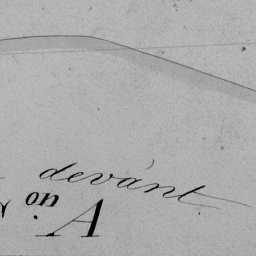 devant
on. A